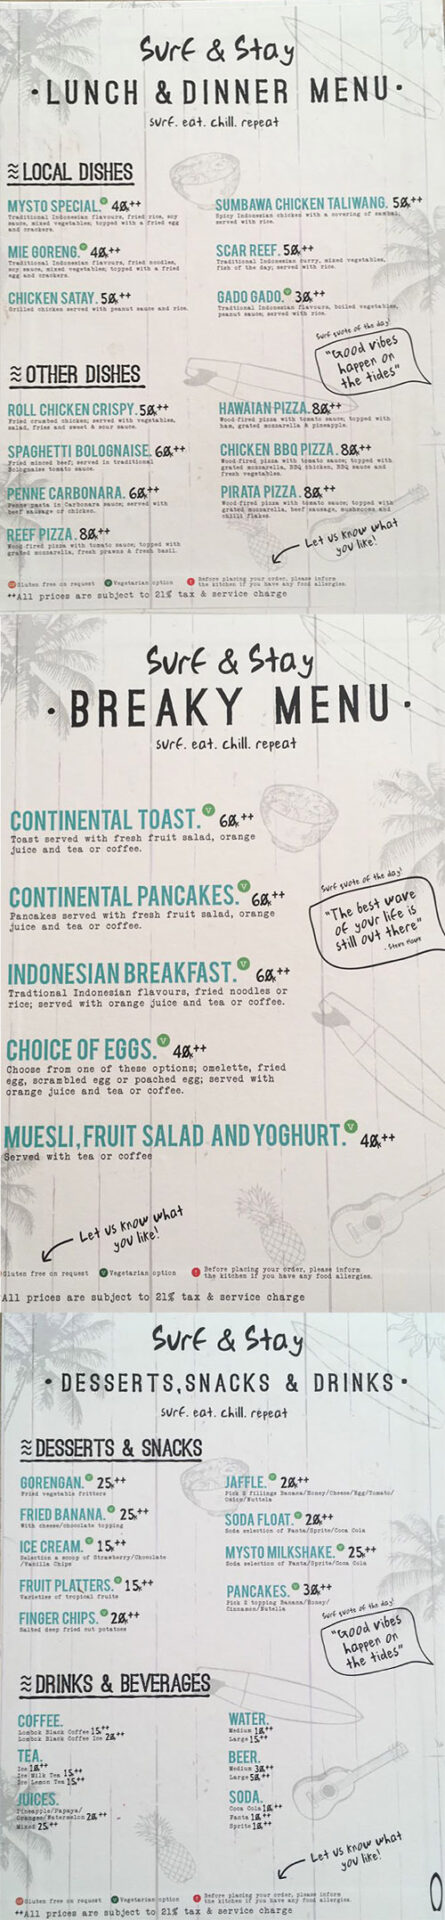 Surf & Stay
·LUNCH & DINNER MENU·
surf. eat. chill. repeat
LOCAL DISHES
MYSTO SPECIAL. V 40k++
Traditional Indonesian flavours, fried rice, soy
sauce, mixed vegetables; topped with a fried egg
and crackers.
MIE GORENG. V 40k++
Traditional Indonesian flavours, fried noodles,
soy sauce, mixed vegetables; topped with a fried
egg and crackers.
CHICKEN SATAY. 50k++
Grilled chicken served with peanut sauce and rice.
SUMBAWA CHICKEN TALIWANG. 50k++
Spicy Indonesian chicken with a covering of sambal;
served with rice.
SCAR REEF. 50k++
Traditional Indonesian curry, mixed vegetables,
fish of the day; served with rice.
GADO GADO. V 30k++
Traditional Indonesian flavours, boiled vegetables,
peanut sauce; served with rice.
Surf quote of the day!
"Good vibes
happen on
the tides"
OTHER DISHES
ROLL CHICKEN CRISPY. 50k++
Fried crumbed chicken; served with vegetables,
salad, fries and sweet & sour sauce.
SPAGHETTI BOLOGNAISE. 60k++
Fried minced beef; served in traditional
Bolognaise tomato sauce.
PENNE CARBONARA. 60k++
Penne pasta in Carbonara sauce; served with
beef sausage or chicken.
REEF PIZZA. 80k++
Wood-fired pizza with tomato sauce; topped with
grated mozzarella, fresh prawns & fresh basil.
HAWAIAN PIZZA. 80k++
Wood-fired pizza with tomato sauce; topped with
ham, grated mozzarella & pineapple.
CHICKEN BBQ PIZZA. 80k++
Wood-fired pizza with tomato sauce; topped with
grated mozzarella, BBQ chicken, BBQ sauce and
fresh vegetables.
PIRATA PIZZA. 80k++
Wood-fired pizza with tomato sauce; topped with
grated mozzarella, beef sausage, mushrooms and
chilli flakes.
Let us know what
you like!
Gluten free on request V Vegetarian option ! Before placing your order, please inform
the kitchen if you have any food allergies.
**All prices are subject to 21% tax & service charge
Surf & Stay
·BREAKY MENU·
surf. eat. chill. repeat
CONTINENTAL TOAST. V 60k++
Toast served with fresh fruit salad, orange
juice and tea or coffee.
CONTINENTAL PANCAKES. V 60k++
Pancakes served with fresh fruit salad, orange
juice and tea or coffee.
Surf quote of the day!
"The best wave
of your life is
still out there"
INDONESIAN BREAKFAST. V 60k++
Tradtional Indonesian flavours, fried noodles or
rice; served with orange juice and tea or coffee.
CHOICE OF EGGS. V 40k++
Choose from one of these options; omelette, fried
egg, scrambled egg or poached egg; served with
orange juice and tea or coffee.
MUESLI, FRUIT SALAD AND YOGHURT. V 40k++
Served with tea or coffee
Let us know what
you like!
Gluten free on request V Vegetarian option ! Before placing your order, please inform
the kitchen if you have any food allergies.
All prices are subject to 21% tax & service charge
Surf & Stay
·DESSERTS,SNACKS & DRINKS·
surf. eat. chill. repeat
DESSERTS & SNACKS
GORENGAN. V 25k++
Fried vegetable fritters
FRIED BANANA. V 25k++
With cheese/chocolate topping
ICE CREAM. V 15k++
Selection a scoop of Strawberry/Chocolate
/Vanilla Chips
FRUIT PLATTERS. V 15k++
Varieties of tropical fruits
FINGER CHIPS. V 20k++
Salted deep fried cut potatoes
JAFFLE. V 20k++
Pick 2 fillings Banana/Honey/Cheese/Egg/Tomato/
Onion/Nuttela
SODA FLOAT. V 20k++
Soda selection of Fanta/Sprite/Coca Cola
MYSTO MILKSHAKE. V 25k++
Soda selection of Fanta/Sprite/Coca Cola
PANCAKES. V 30k++
Pick 2 topping Banana/Honey/
Cinnamon/Nutella
Surf quote of the day!
"Good vibes
happen on
the tides"
DRINKS & BEVERAGES
COFFEE.
Lombok Black Coffee 15k++
Lombok Black Coffee Ice 20k++
TEA.
Ice 10k++
Ice Milk Tea 15k++
Ice Lemon Tea 15k++
JUICES.
Pineapple/Papaya/
Oranges/Watermelon 20k++
Mixed 25k++
WATER.
Medium 10k++
Large 15k++
BEER.
Medium 30k++
Large 50k++
SODA.
Coca Cola 10k++
Fanta 10k++
Sprite 10k++
Let us know what
you like!
Gluten free on request V Vegetarian option ! Before placing your order, please inform
the kitchen if you have any food allergies.
**All prices are subject to 21% tax & service charge